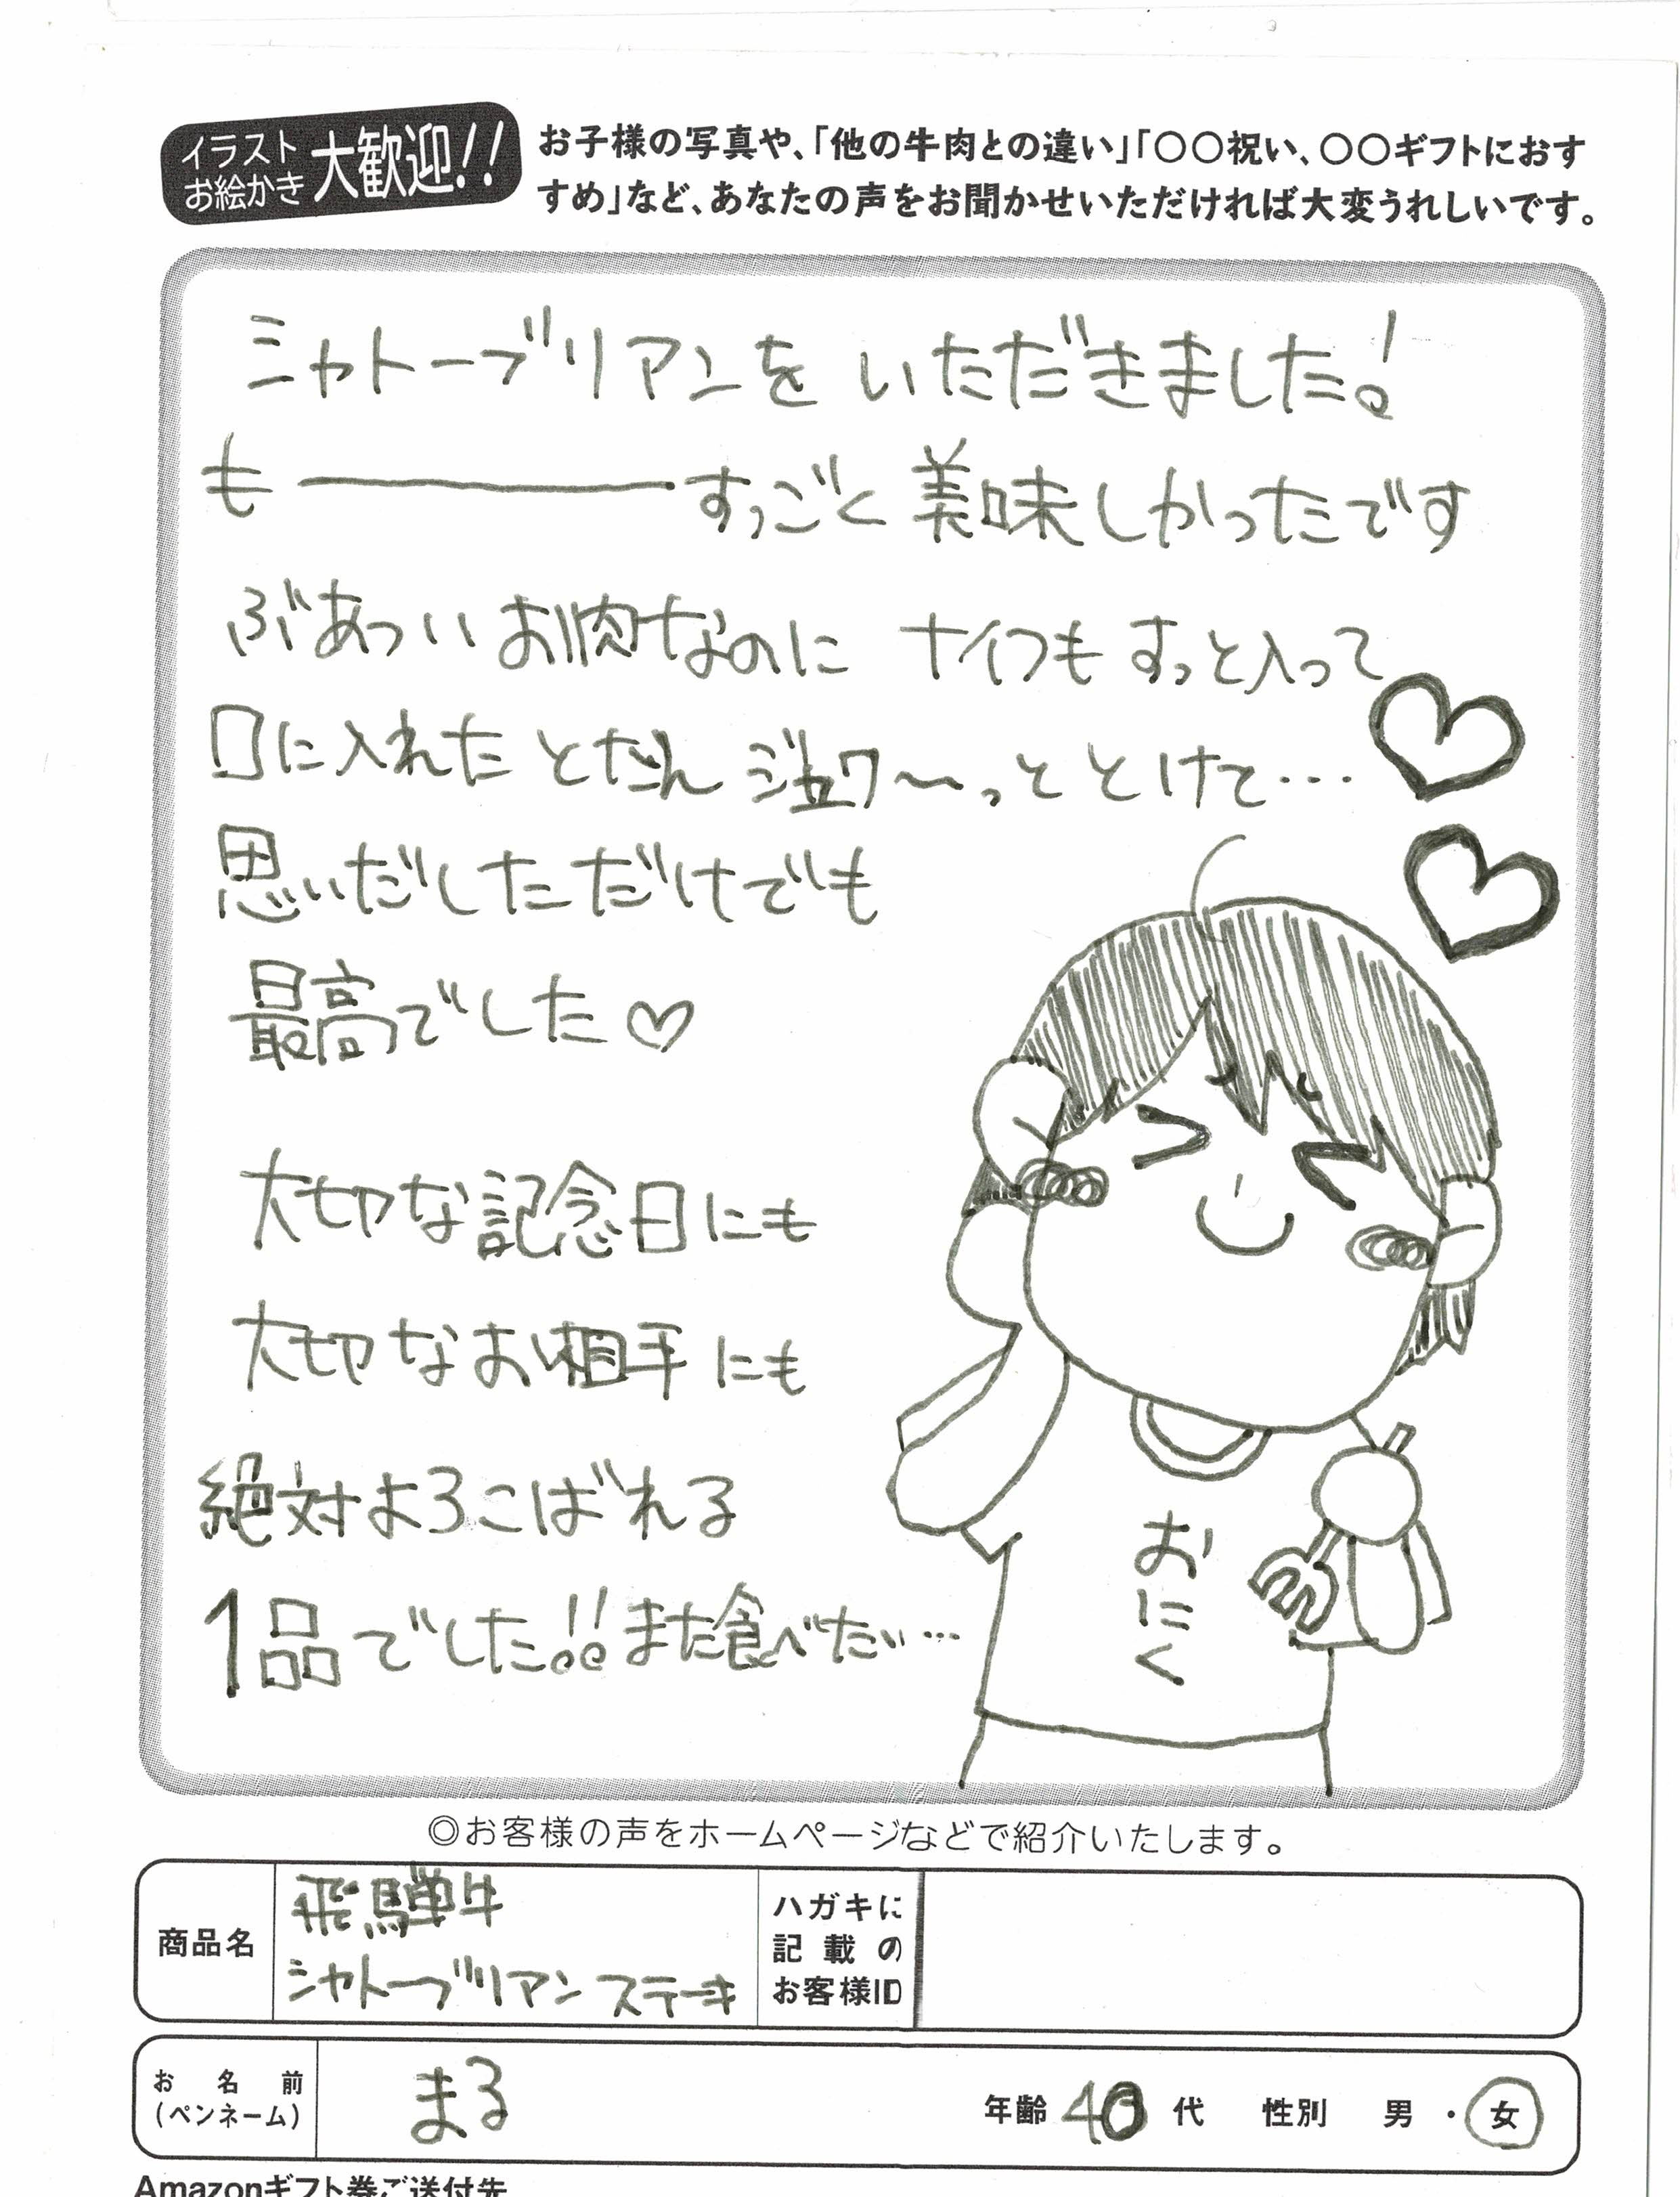 イラスト
お絵かき
大歓迎!!
お子様の写真や、「他の牛肉との違い」「〇〇祝い、〇〇ギフトにおす
すめ」など、あなたの声をお聞かせいただければ大変うれしいです。
シャトーブリアンを いただきました!
も――――すっごく 美味しかったです
ぶあつい お肉なのに ナイフも すっと入って
口に入れた とたん ジュワ〜っと とけて…
思いだしただけでも
最高でした♡
大切な記念日にも
大切なお相手にも
絶対よろこばれる
1品でした!!また食べたい…
おにく
◎お客様の声をホームページなどで紹介いたします。
商品名
飛騨牛
シャトーブリアンステーキ
ハガキに
記載の
お客様ID
お名前
(ペンネーム)
まる
年齢 40 代 性別 男・女
Amazonギフト券ご送付先